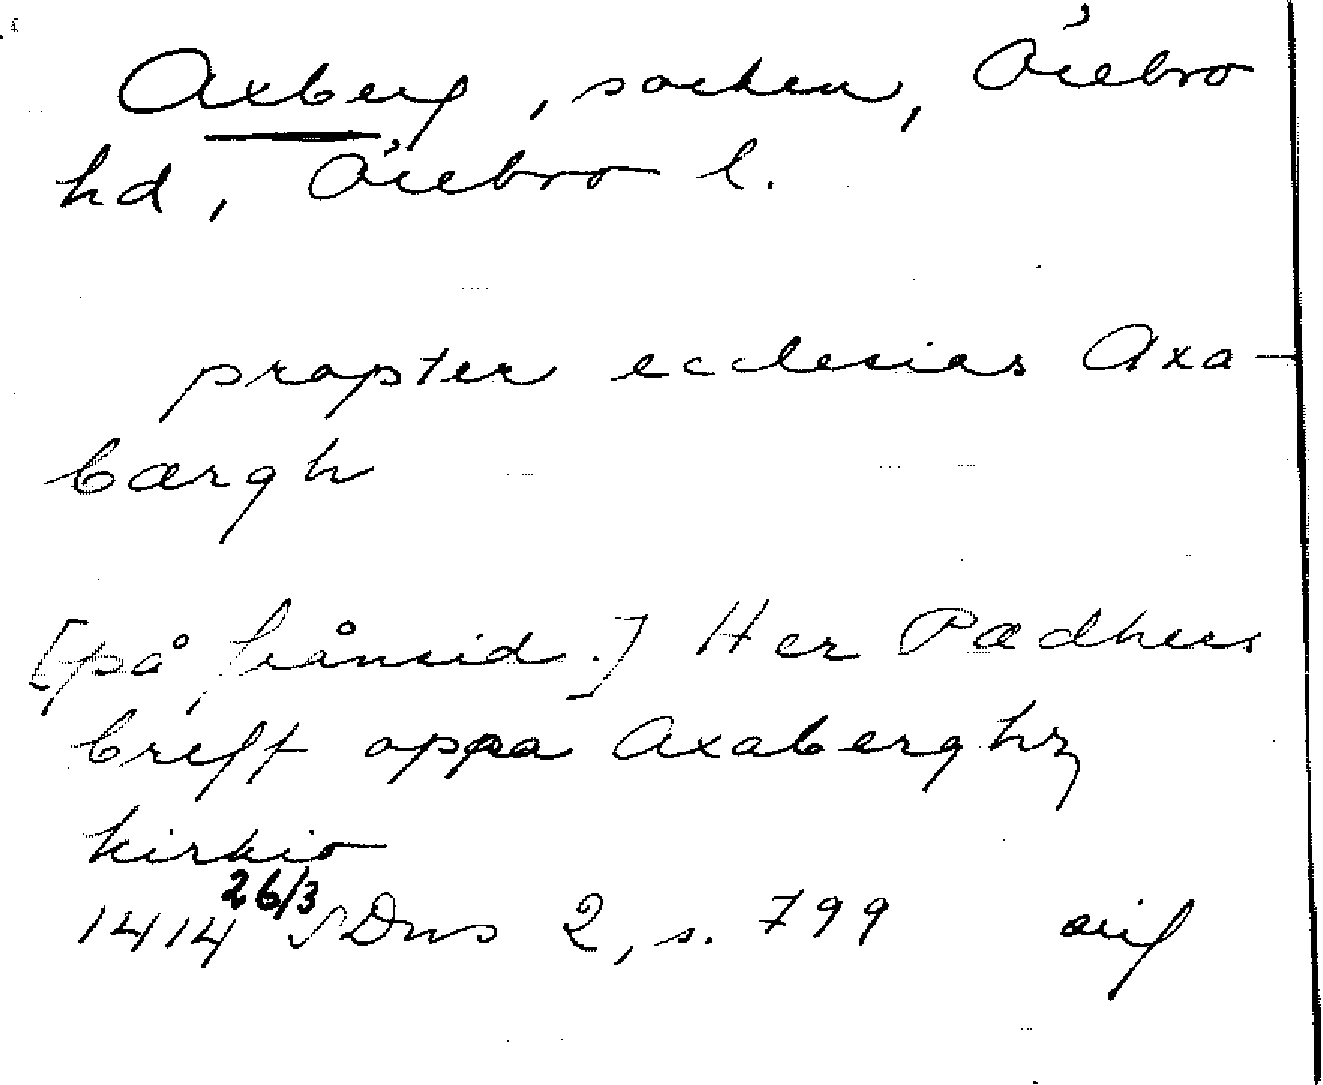 Axberg, socken, Örebro
hd, Örebro l.
propter ecclesias Axa-
bærgh
[på frånsid.] Her Pædhers
breff oppa Axaberghz
kirkio
1414 26/3 SDns 2, s. 799 orig